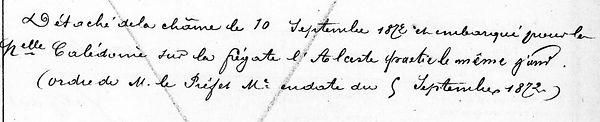 Détaché de la chaîne le 10 Septembre 1872 et embarqué pour la
Nelle Calédonie sur la frégate l'Alceste partie le même jour.
(ordre de M. le Préfet Me en date du 5 Septembre 1872)